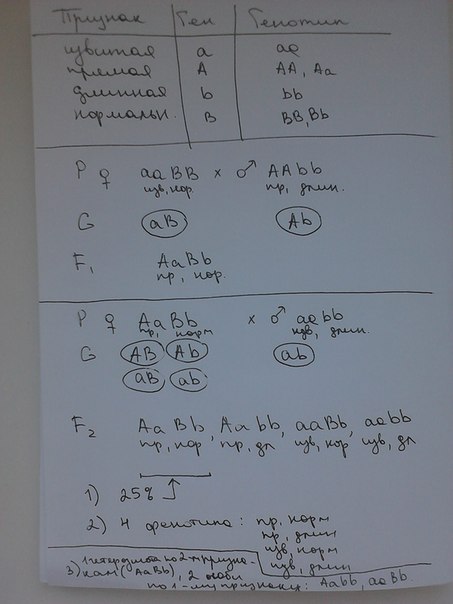 Признак Ген Генотип
извитая a aa
прямая A AA, Aa
длинная b bb
нормальн. B BB, Bb
P ♀ aaBB × ♂ AAbb
изв, нор. пр, длин.
G aB Ab
F1 AaBb
пр, нор.
P ♀ AaBb × ♂ aabb
пр, норм изв, длин.
G AB Ab ab
aB ab
F2 AaBb, Aabb, aaBb, aabb
пр, нор, пр, дл изв, кор, изв, дл
1) 25%
2) 4 фенотипа: пр, норм
пр, длин
изв, норм
изв, длин
1 гетерозигота по 2м призна-
3) кам (AaBb), 2 особи
по 1-му признаку: Aabb, aaBb